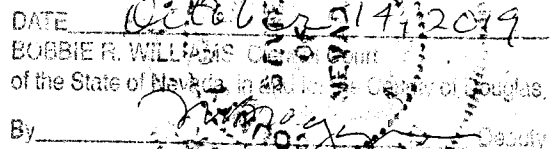 DATE October 14, 2019
BOBBIE R. WILLIAMS Clerk of Court
of the State of Nevada, in and for the County of Douglas,
By Deputy